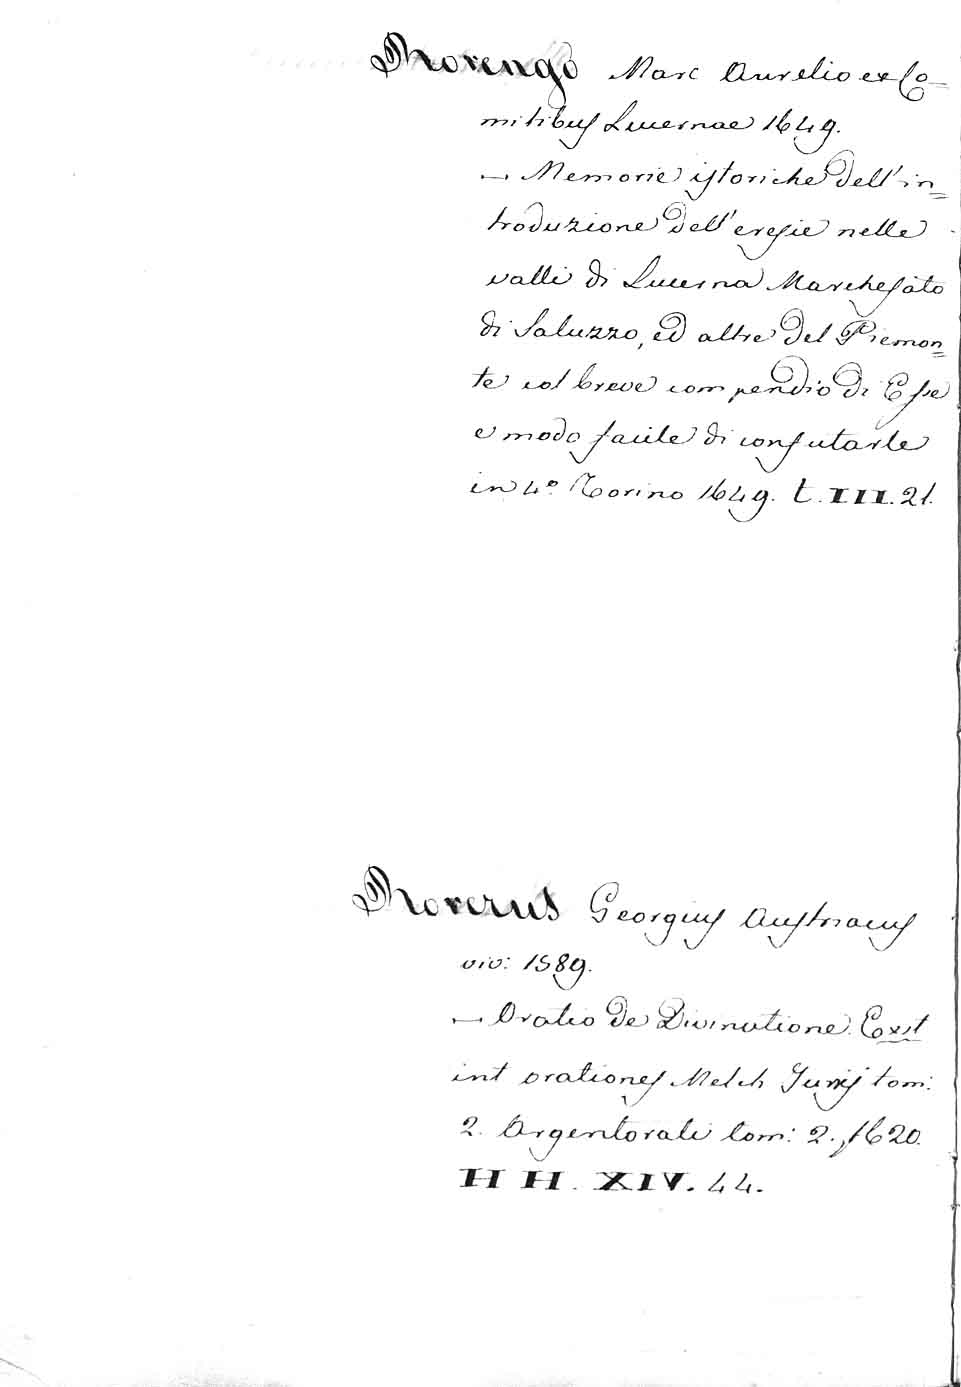 Rorengo Marc Aurelio ex Co-
mitibus Lucernae 1649.
— Memorie istoriche dell'in=
troduzione dell'eresie nelle
valli di Lucerna Marchesato
di Saluzzo, ed altre del Piemon=
te col breve compendio di Esse
e modo facile di confutarle
in 4º Torino 1649. t. III. 21.
Rorerus Georgius Austriacus
viv: 1589.
— Oratio de Divinatione. Exst
int orationes Melch Junij tom:
2. Argentorati tom: 2., 1620.
HH. XIV. 44.